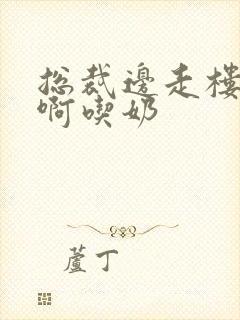 总裁邊走樓
啊喫奶
蘆丁